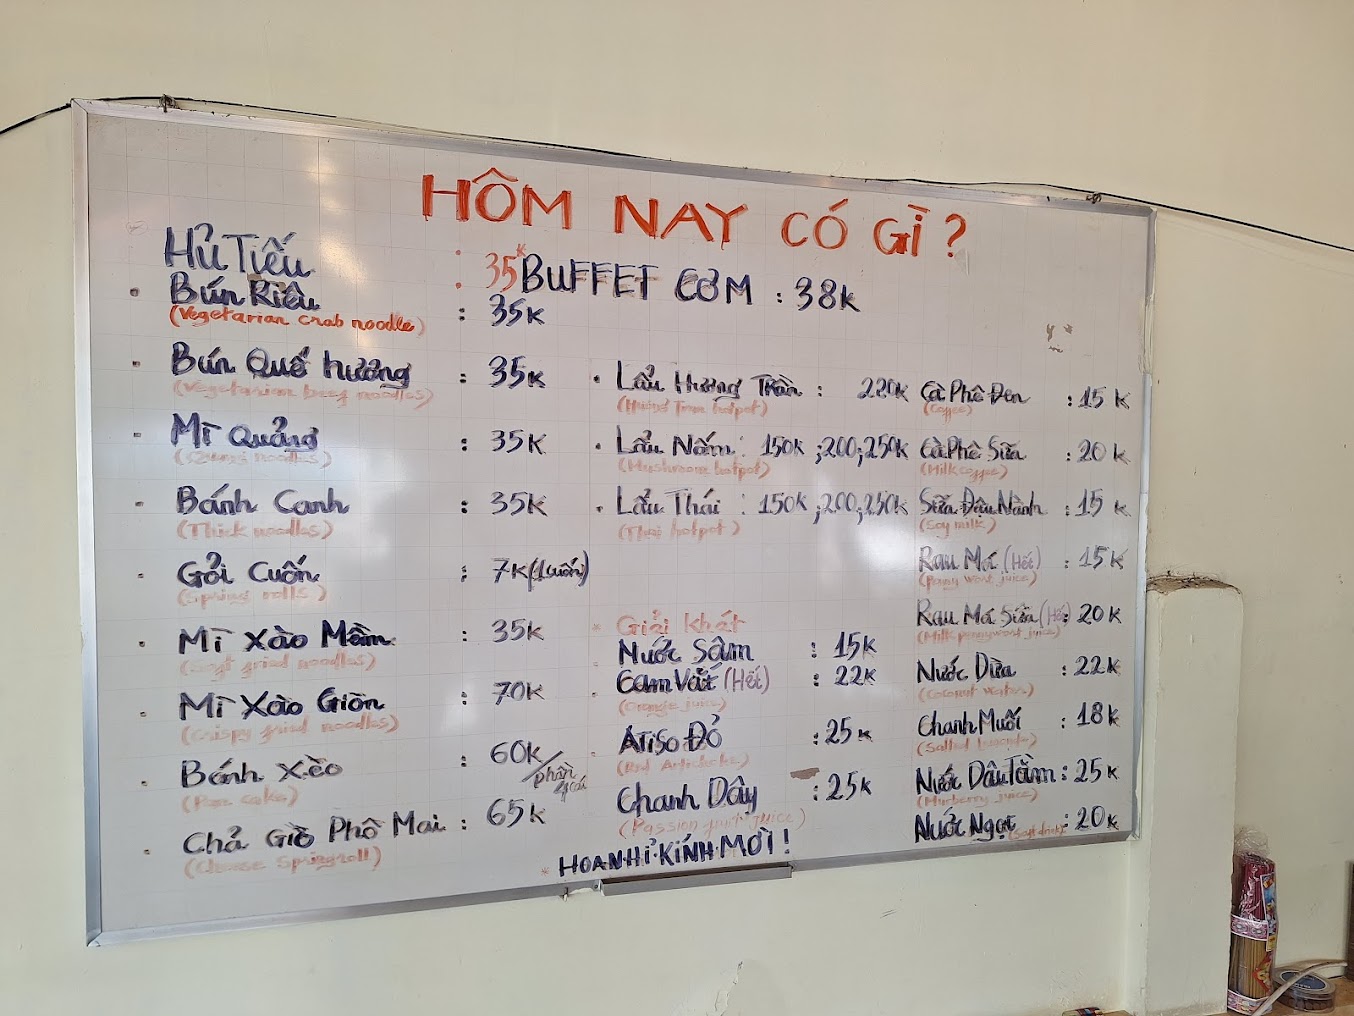 HÔM NAY CÓ GÌ?
HỦ TIẾU : 35K
BUFFET CƠM : 38K
BÚN RIÊU : 35K
(Vegetarian crab noodle)
BÚN QUẾ HƯƠNG : 35K
(Vegetarian beef noodles)
MÌ QUẢNG : 35K
(Quangi noodles)
BÁNH CANH : 35K
(Thick noodles)
GỎI CUỐN : 7K (1 cuốn)
(Spring rolls)
MÌ XÀO MỀM : 35K
(Soft fried noodles)
MÌ XÀO GIÒN : 70K
(Crispy fried noodles)
BÁNH XÈO : 60K/phần
(Pan cake)
CHẢ GIÒ PHÔ MAI : 65K
(Cheese Spring roll)
LẨU HƯƠNG TRẦN : 220K
(Hương Trần hotpot)
LẨU NẤM : 150K ; 200 ; 250K
(Mushroom hotpot)
LẨU THÁI : 150K ; 200 ; 250K
(Thai hotpot)
* Giải khát
NƯỚC SÂM : 15K
CAM VẮT (Hết) : 22K
(Orange juice)
ATISO ĐỎ : 25K
(Red Artichoke)
CHANH DÂY : 25K
(Passion fruit juice)
* HOAN HỈ KÍNH MỜI !
CÀ PHÊ ĐEN : 15K
(Coffee)
CÀ PHÊ SỮA : 20K
(Milk coffee)
SỮA ĐẬU NÀNH : 15K
(Soy milk)
RAU MÁ (Hết) : 15K
(Penny wort juice)
RAU MÁ SỮA (Hết) : 20K
(Milk pennywort juice)
NƯỚC DỪA : 22K
(Coconut water)
CHANH MUỐI : 18K
(Salted lemonade)
NƯỚC DÂU TẰM : 25K
(Murberry juice)
NƯỚC NGỌT (soft drink) : 20K